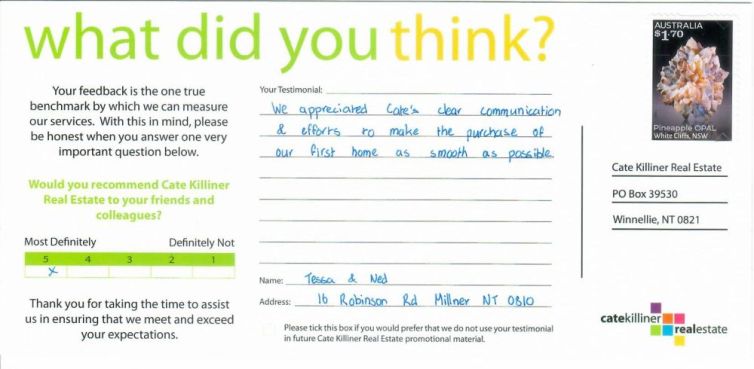 what did you think?
Your feedback is the one true
benchmark by which we can measure
our services. With this in mind, please
be honest when you answer one very
important question below.
Would you recommend Cate Killiner
Real Estate to your friends and
colleagues?
Most Definitely Definitely Not
5 4 3 2 1
x
Thank you for taking the time to assist
us in ensuring that we meet and exceed
your expectations.
Your Testimonial:
We appreciated Cate's clear communication
& efforts to make the purchase of
our first home as smooth as possible
Name: Tessa & Ned
Address: 16 Robinson Rd Millner NT 0810
Please tick this box if you would prefer that we do not use your testimonial
in future Cate Killiner Real Estate promotional material.
AUSTRALIA
$1.70
Pineapple OPAL
White Cliffs, NSW
Cate Killiner Real Estate
PO Box 39530
Winnellie, NT 0821
catekilliner
realestate